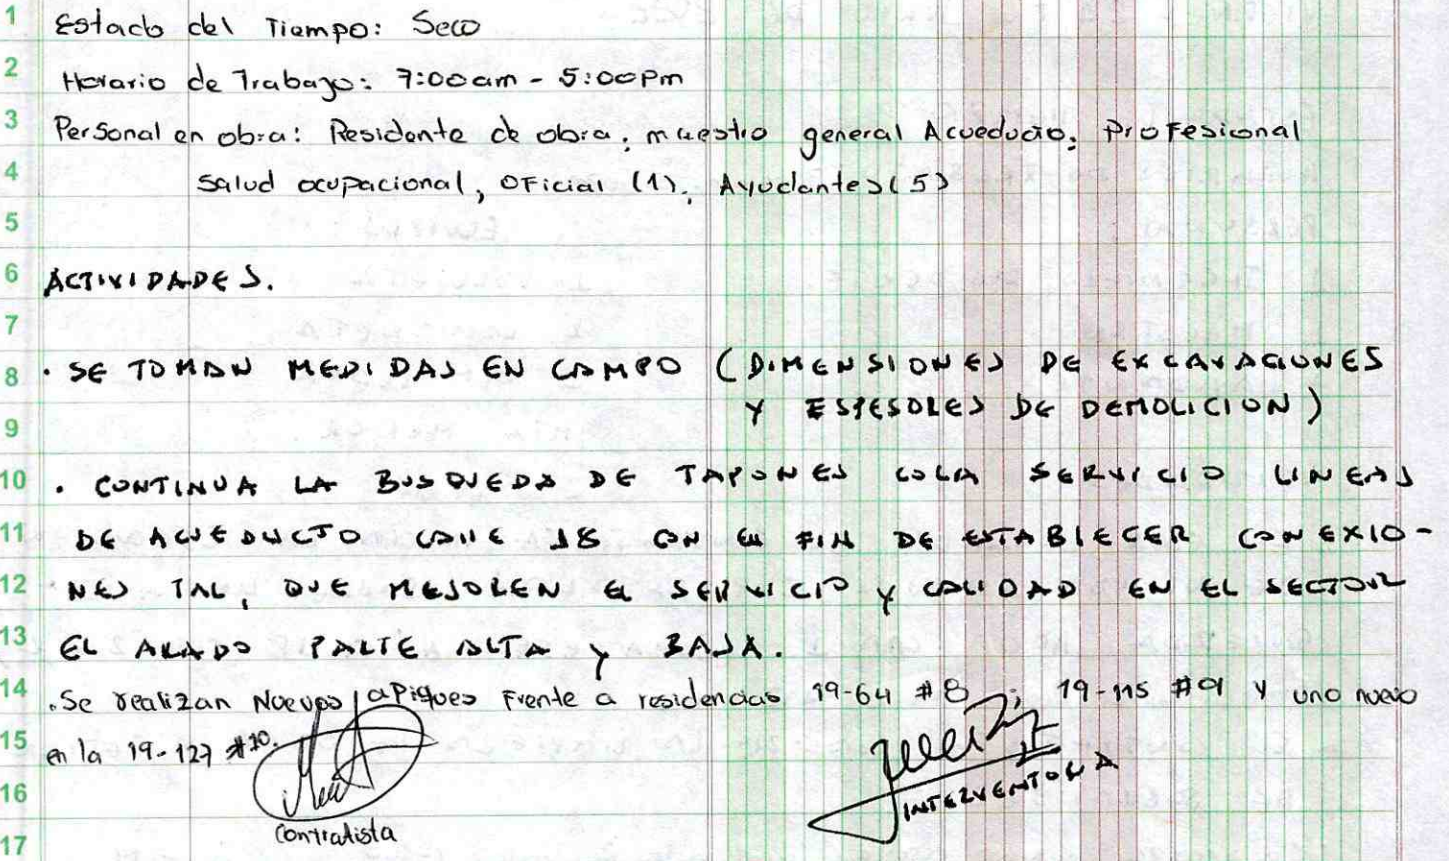 1 Estado del Tiempo: Seco
2 Horario de Trabajo: 7:00am - 5:00Pm
3 Personal en obra: Residente de obra, maestro general Acueducto, Profesional
4 Salud ocupacional, Oficial (1), Ayudantes(5)
5
6 ACTIVIDADES.
7
8 . SE TOMAN MEDIDAS EN CAMPO (DIMENSIONES DE EXCAVACIONES
Y ESPESORES DE DEMOLICION)
9
10 . CONTINUA LA BUSQUEDA DE TAPONES COLA SERVICIO LINEAS
11 DE ACUEDUCTO CALLE 18 CON EL FIN DE ESTABLECER CONEXIO-
12 NES TAL, QUE MEJOREN EL SERVICIO Y CALIDAD EN EL SECTOR
13 EL ARADO PARTE ALTA Y BAJA.
14 . Se realizan Nuevos apiques Frente a residencias 19-64 #8 ; 19-115 #9 y uno nuevo
15 en la 19-127 #10.
16 INTERVENTORIA
Contratista
17